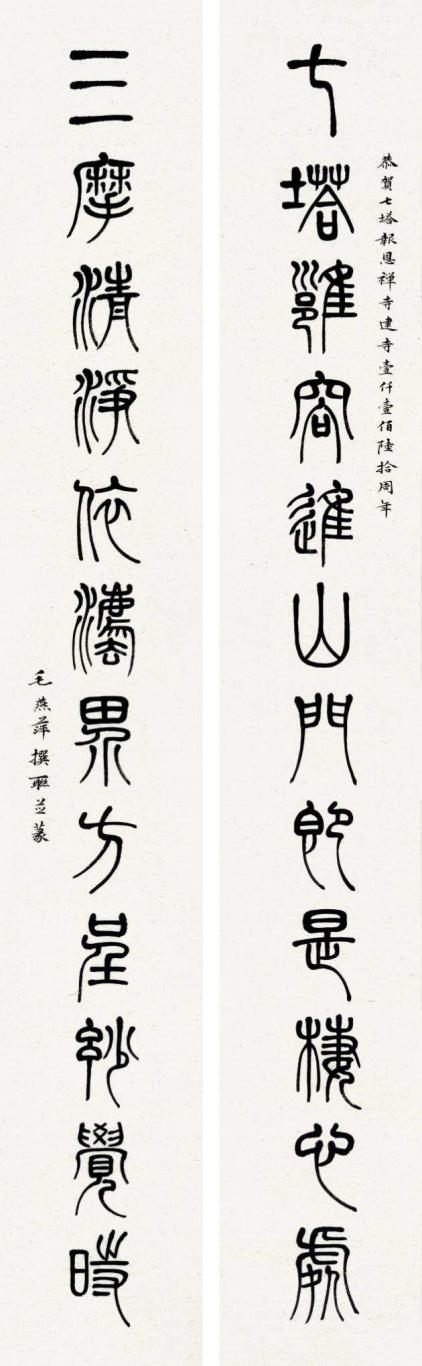 恭賀七塔報恩禅寺建寺壹仟壹佰陸拾周年
七塔雝容進山門即是棲心處
三摩清淨依灋界方呈玅覺時
毛燕萍撰聯並篆